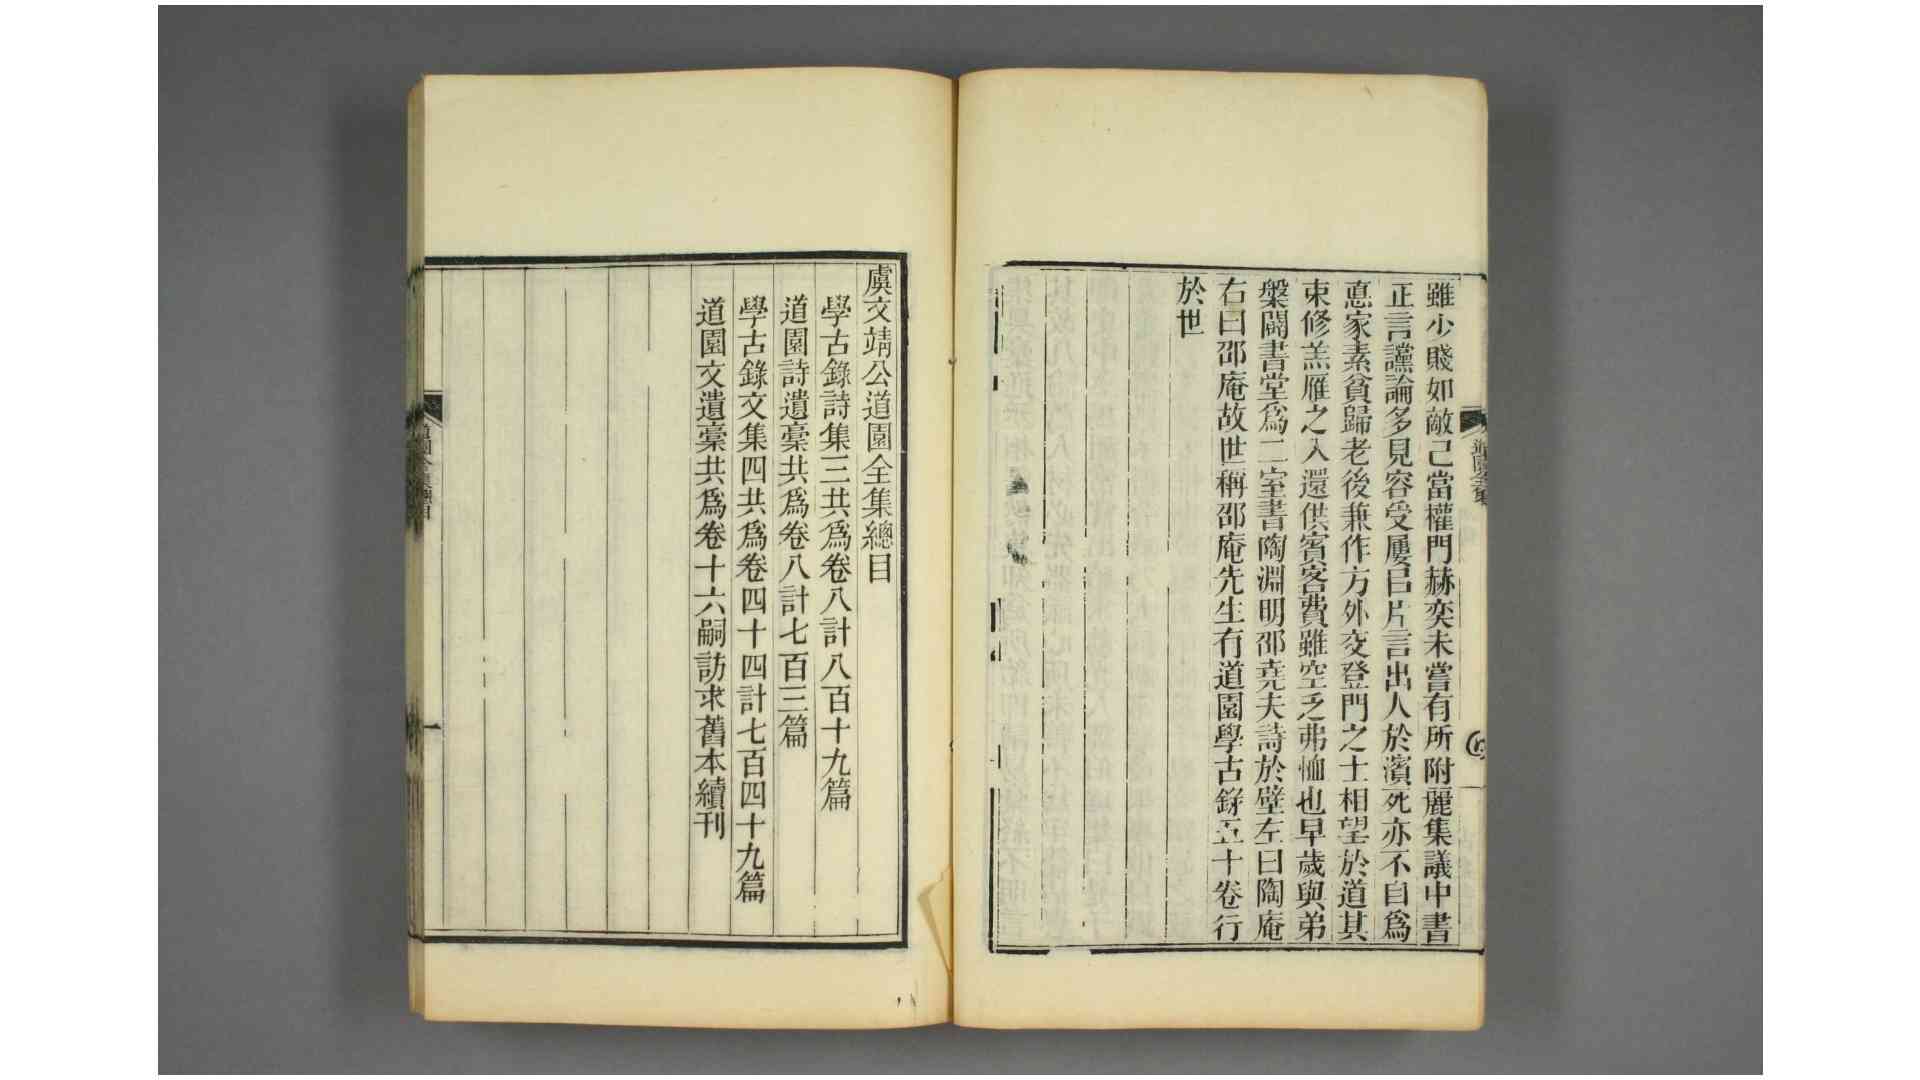 雖少賤如敵己當權門赫奕未嘗有所附麗集議中書
正言讜論多見容受屢㠯片言出人於濱死亦不自爲
悳家素貧歸老後兼作方外交登門之士相望於道其
束修羔雁之入還供賓客費雖空乏弗恤也早歲與弟
槃闢書堂爲二室書陶淵明邵堯夫詩於壁左曰陶庵
右曰邵庵故世稱邵庵先生有道園學古錄五十卷行
於世
道園全集
虞文靖公道園全集總目
學古錄詩集三共爲卷八計八百十九篇
道園詩遺稾共爲卷八計七百三篇
學古錄文集四共爲卷四十四計七百四十九篇
道園文遺稾共爲卷十六嗣訪求舊本續刊
道園全集總目
一